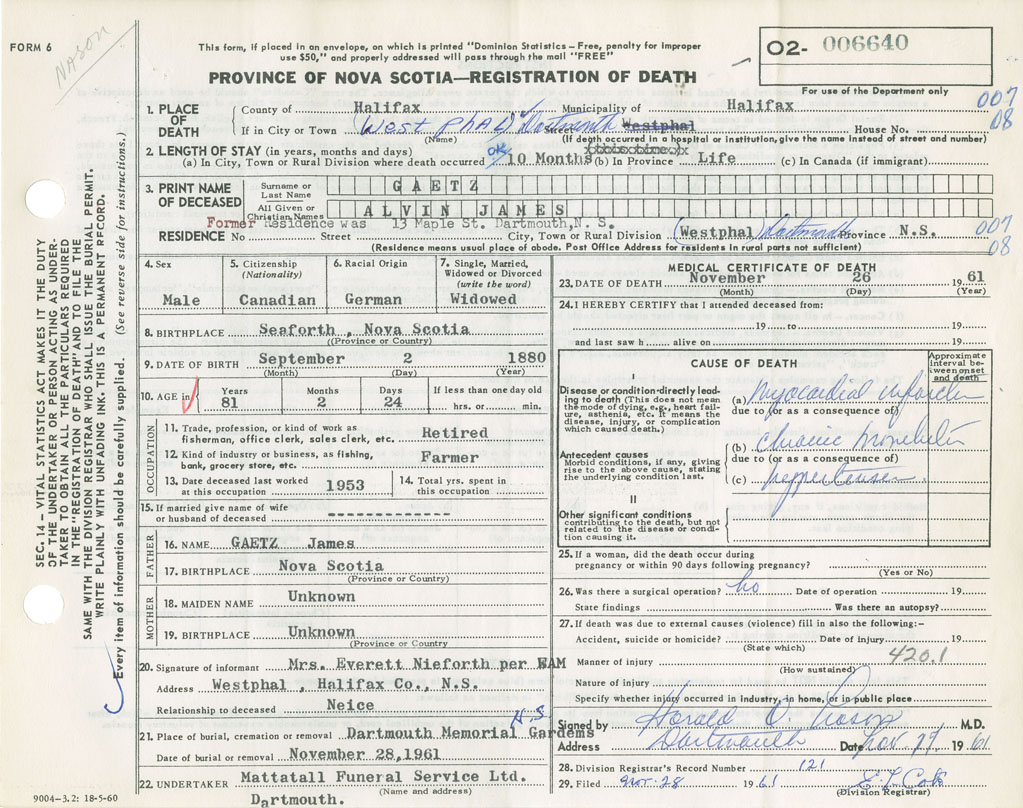 FORM 6
NASON
This form, if placed in an envelope, on which is printed "Dominion Statistics – Free, penalty for improper
use $50," and properly addressed will pass through the mail "FREE"
O2- 006640
PROVINCE OF NOVA SCOTIA—REGISTRATION OF DEATH
For use of the Department only
007
08
1. PLACE OF DEATH
County of Halifax Municipality of Halifax
If in City or Town (West phal) Dartmouth Street Westphal House No.
(Name) (If death occurred in a hospital or institution, give the name instead of street and number)
2. LENGTH OF STAY (in years, months and days)
(a) In City, Town or Rural Division where death occurred OK 10 Months (b) In Province Life (c) In Canada (if immigrant)
3. PRINT NAME OF DECEASED
Surname or Last Name GAETZ
All Given or Christian Names ALVIN JAMES
Former Residence was 13 Maple St. Dartmouth, N. S.
RESIDENCE No Street City, Town or Rural Division (Westphal) Dartmouth Province N.S.
007
08
(Residence means usual place of abode. Post Office Address for residents in rural parts not sufficient)
4. Sex
Male
5. Citizenship (Nationality)
Canadian
6. Racial Origin
German
7. Single, Married, Widowed or Divorced (write the word)
Widowed
8. BIRTHPLACE Seaforth , Nova Scotia
((Province or Country)
9. DATE OF BIRTH September 2 1880
(Month) (Day) (Year)
10. AGE in
Years 81
Months 2
Days 24
If less than one day old
hrs. or min.
OCCUPATION
11. Trade, profession, or kind of work as fisherman, office clerk, sales clerk, etc. Retired
12. Kind of industry or business, as fishing, bank, grocery store, etc. Farmer
13. Date deceased last worked at this occupation 1953
14. Total yrs. spent in this occupation
15. If married give name of wife or husband of deceased - - - - - - - - - - - -
FATHER
16. NAME GAETZ James
17. BIRTHPLACE Nova Scotia
(Province or Country)
MOTHER
18. MAIDEN NAME Unknown
19. BIRTHPLACE Unknown
(Province or Country
20. Signature of informant Mrs. Everett Nieforth per EAM
Address Westphal , Halifax Co., N.S.
Relationship to deceased Neice
N.S.
21. Place of burial, cremation or removal Dartmouth Memorial Gardems
Date of burial or removal November 28,1961
22. UNDERTAKER Mattatall Funeral Service Ltd.
(Name and address)
Dartmouth.
9004-3.2: 18-5-60
MEDICAL CERTIFICATE OF DEATH
23. DATE OF DEATH November 26 1961
(Month) (Day) (Year)
24. I HEREBY CERTIFY that I attended deceased from:
19 to 19
and last saw h alive on 19
CAUSE OF DEATH
Approximate interval between onset and death
I
Disease or condition directly leading to death (This does not mean the mode of dying, e.g., heart failure, asthenia, etc. it means the disease, injury, or complication which caused death.)
(a) Myocardial infarction
due to (or as a consequence of)
Antecedent causes
Morbid conditions, if any, giving rise to the above cause, stating the underlying condition last.
(b) chronic
due to (or as a consequence of)
(c) hypertension
II
Other significant conditions
contributing to the death, but not related to the disease or condition causing it.
25. If a woman, did the death occur during
pregnancy or within 90 days following pregnancy?
(Yes or No)
26. Was there a surgical operation? no Date of operation 19
State findings Was there an autopsy?
27. If death was due to external causes (violence) fill in also the following:-
Accident, suicide or homicide? Date of injury 19
(State which)
420.1
Manner of injury
(How sustained)
Nature of injury
Specify whether injury occurred in industry, in home, or in public place
Signed by Harold D. Nason M.D.
Address Dartmouth Date Nov. 27 1961
28. Division Registrar's Record Number 121
29. Filed Nov. 28 1961 E. L. Cole
(Division Registrar)
SEC. 14 – VITAL STATISTICS ACT MAKES IT THE DUTY
OF THE UNDERTAKER OR PERSON ACTING AS UNDER-
TAKER TO OBTAIN ALL THE PARTICULARS REQUIRED
IN THE "REGISTRATION OF DEATH" AND TO FILE THE
SAME WITH THE DIVISION REGISTRAR WHO SHALL ISSUE THE BURIAL PERMIT.
WRITE PLAINLY WITH UNFADING INK. THIS IS A PERMANENT RECORD.
Every item of information should be carefully supplied. (See reverse side for instructions.)